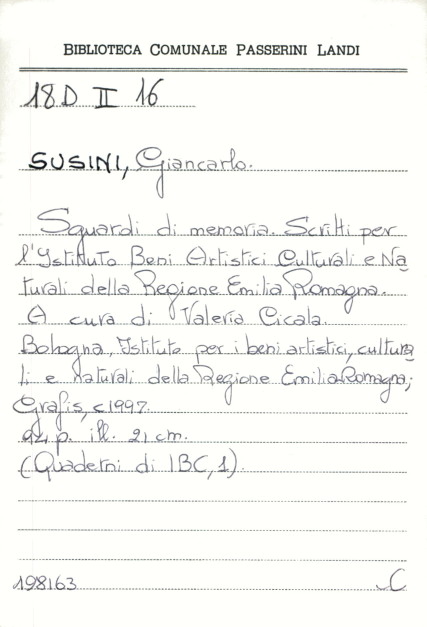 BIBLIOTECA COMUNALE PASSERINI LANDI
18D II 16
SUSINI, Giancarlo.
Sguardi di memoria. Scritti per
l'Istituto Beni Artistici Culturali e Na
turali della Regione Emilia Romagna.
A cura di Valeria Cicala.
Bologna, Istituto per i beni artistici, cultura
li e naturali della Regione Emilia Romagna;
Grafis, c1997.
p. ill. 21 cm.
(Quaderni di IBC, 1).
198163 C